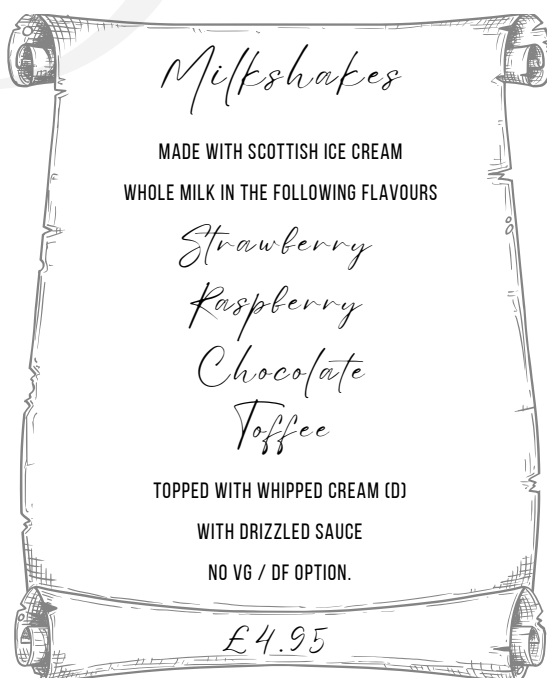 Milkshakes
MADE WITH SCOTTISH ICE CREAM
WHOLE MILK IN THE FOLLOWING FLAVOURS
Strawberry
Raspberry
Chocolate
Toffee
TOPPED WITH WHIPPED CREAM (D)
WITH DRIZZLED SAUCE
NO VG / DF OPTION.
£4.95